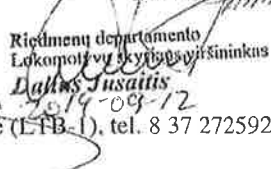 Riedmenų departamento
Lokomotyvų skyriaus viršininkas
Dalius Jusaitis
2019-09-12
(LTB-1), tel. 8 37 272592